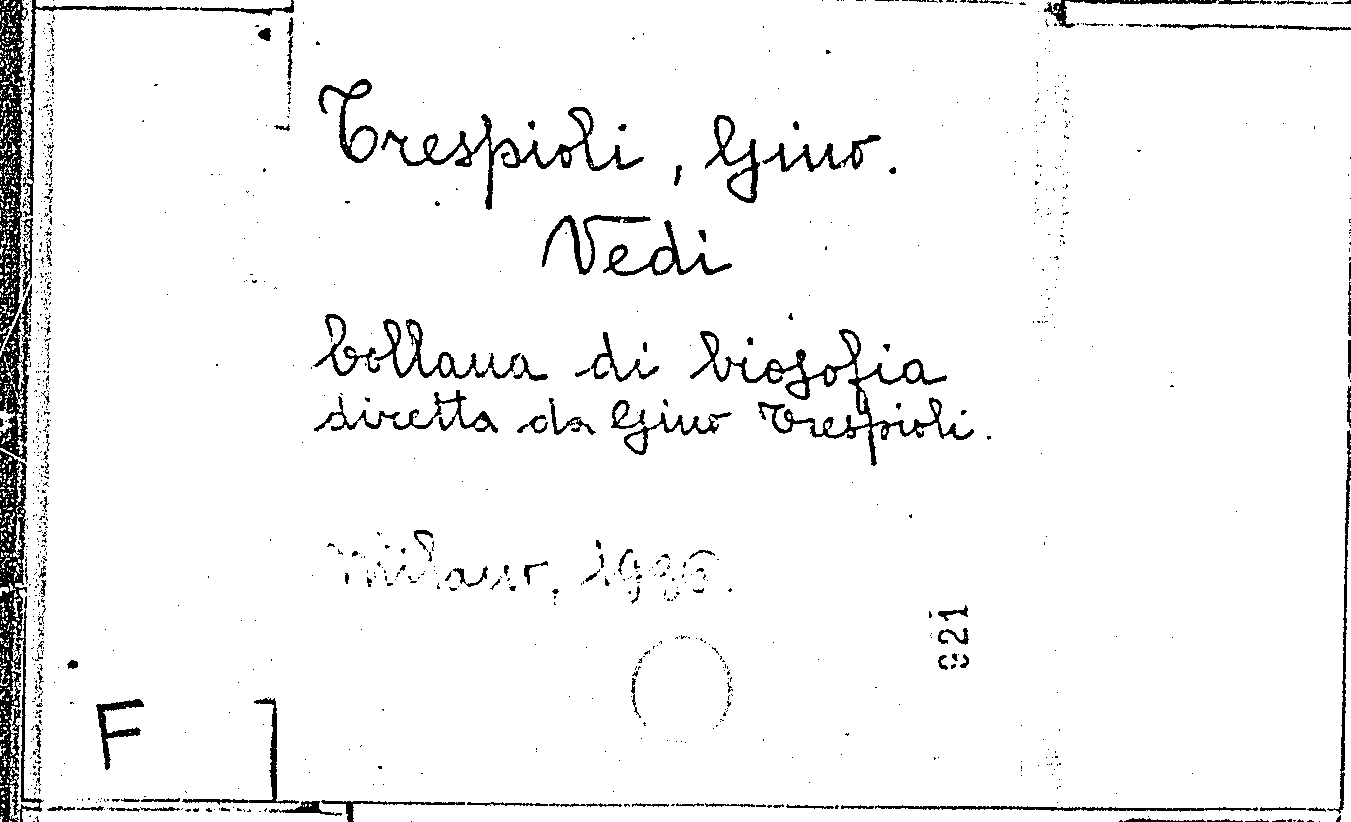 Trespioli, Gino.
Vedi
Collana di biosofia
diretta da Gino Trespioli.
Milano, 1936.
921
F